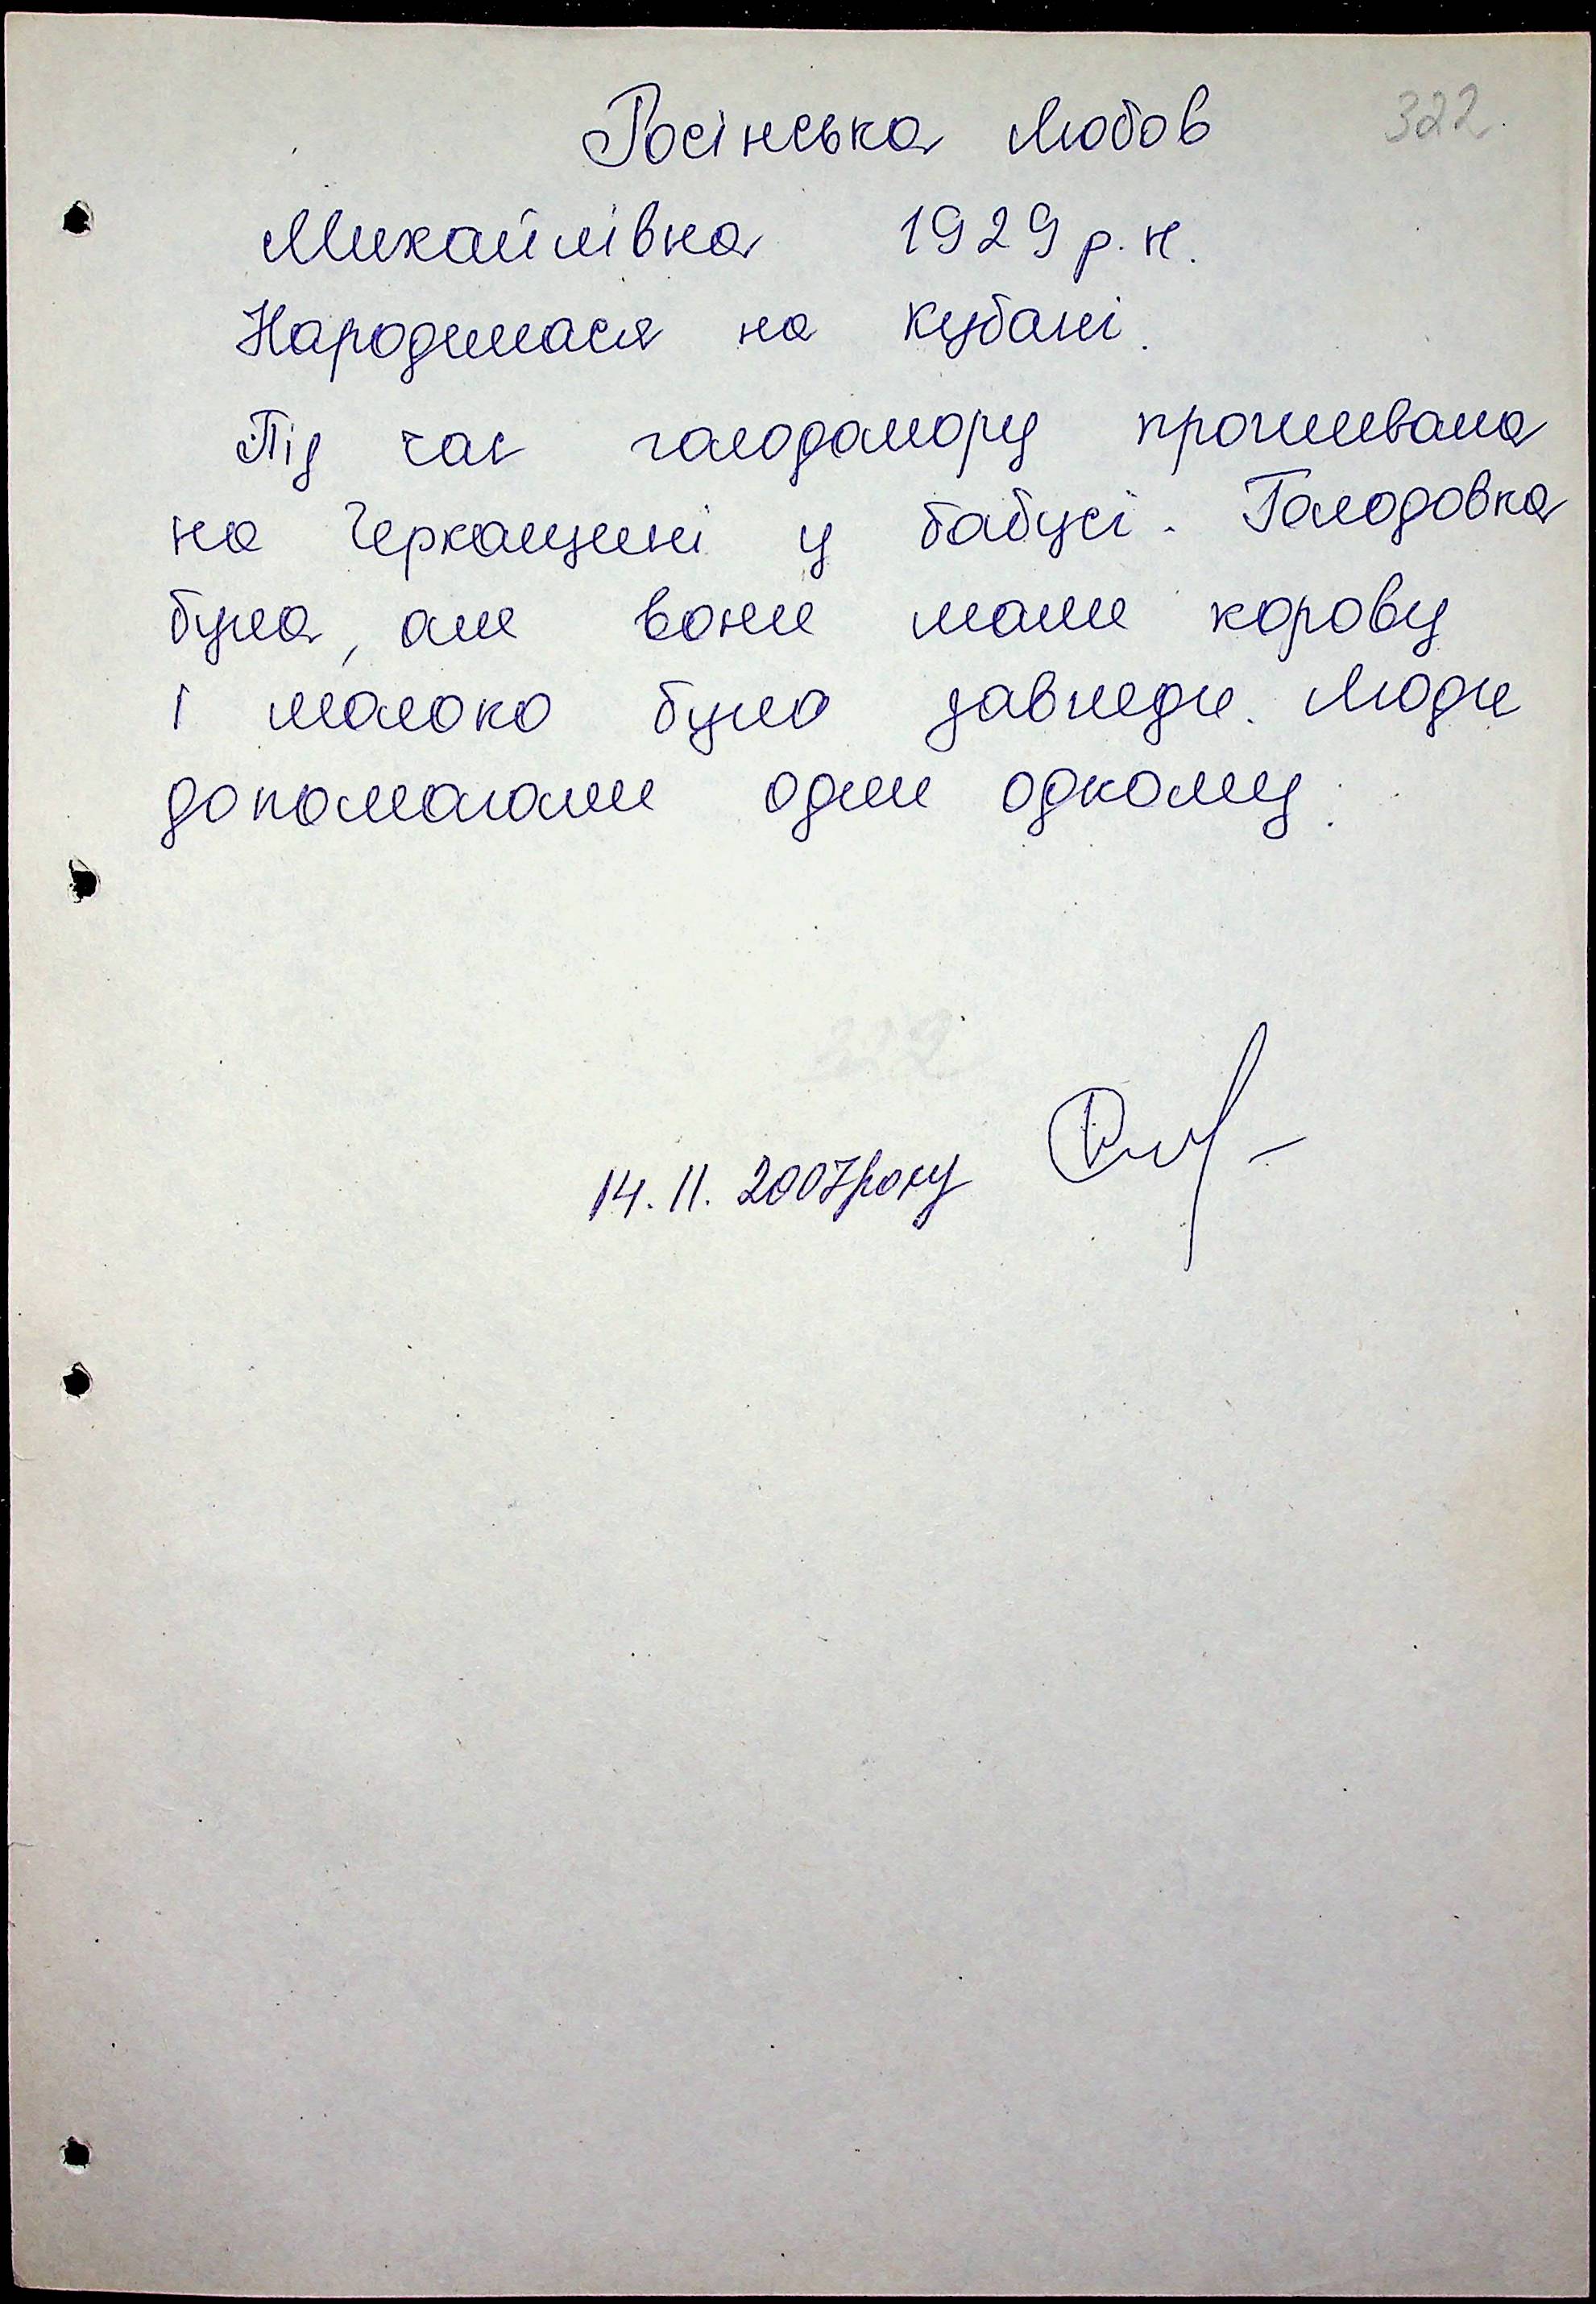 322
Росінська Любов
Михайлівна 1929 р.н.
Народилася на Кубані.
Під час голодомору проживала
на Черкащині у бабусі. Голодовка
була, але вони мали корову
і молоко було завжди. Люди
допомагали один одному.
14.11.2007 року